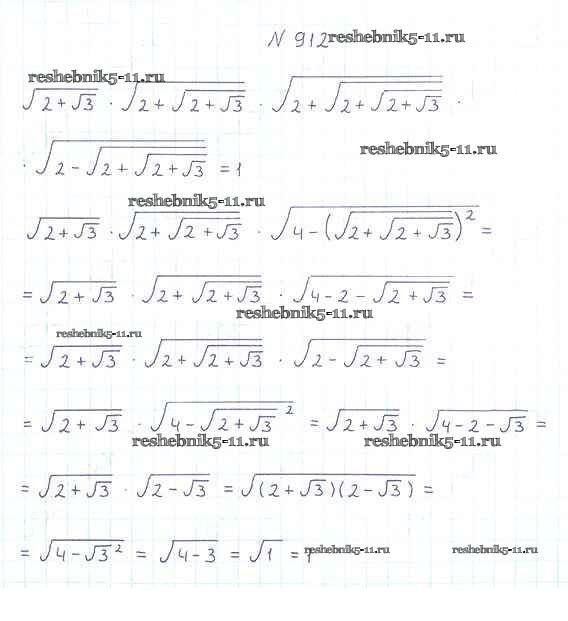 N 912 reshebnik5-11.ru
reshebnik5-11.ru
√(2+√3) · √(2+√(2+√3)) · √(2+√(2+√(2+√3))) ·
· √(2-√(2+√(2+√3))) = 1
reshebnik5-11.ru
reshebnik5-11.ru
√(2+√3) · √(2+√(2+√3)) · √(4-(√(2+√(2+√3)))²) =
= √(2+√3) · √(2+√(2+√3)) · √(4-2-√(2+√3)) =
reshebnik5-11.ru
reshebnik5-11.ru
= √(2+√3) · √(2+√(2+√3)) · √(2-√(2+√3)) =
= √(2+√3) · √(4-√(2+√3)²) = √(2+√3) · √(4-2-√3) =
reshebnik5-11.ru reshebnik5-11.ru
= √(2+√3) · √(2-√3) = √((2+√3)(2-√3)) =
= √(4-√3²) = √(4-3) = √1 = 1 reshebnik5-11.ru reshebnik5-11.ru